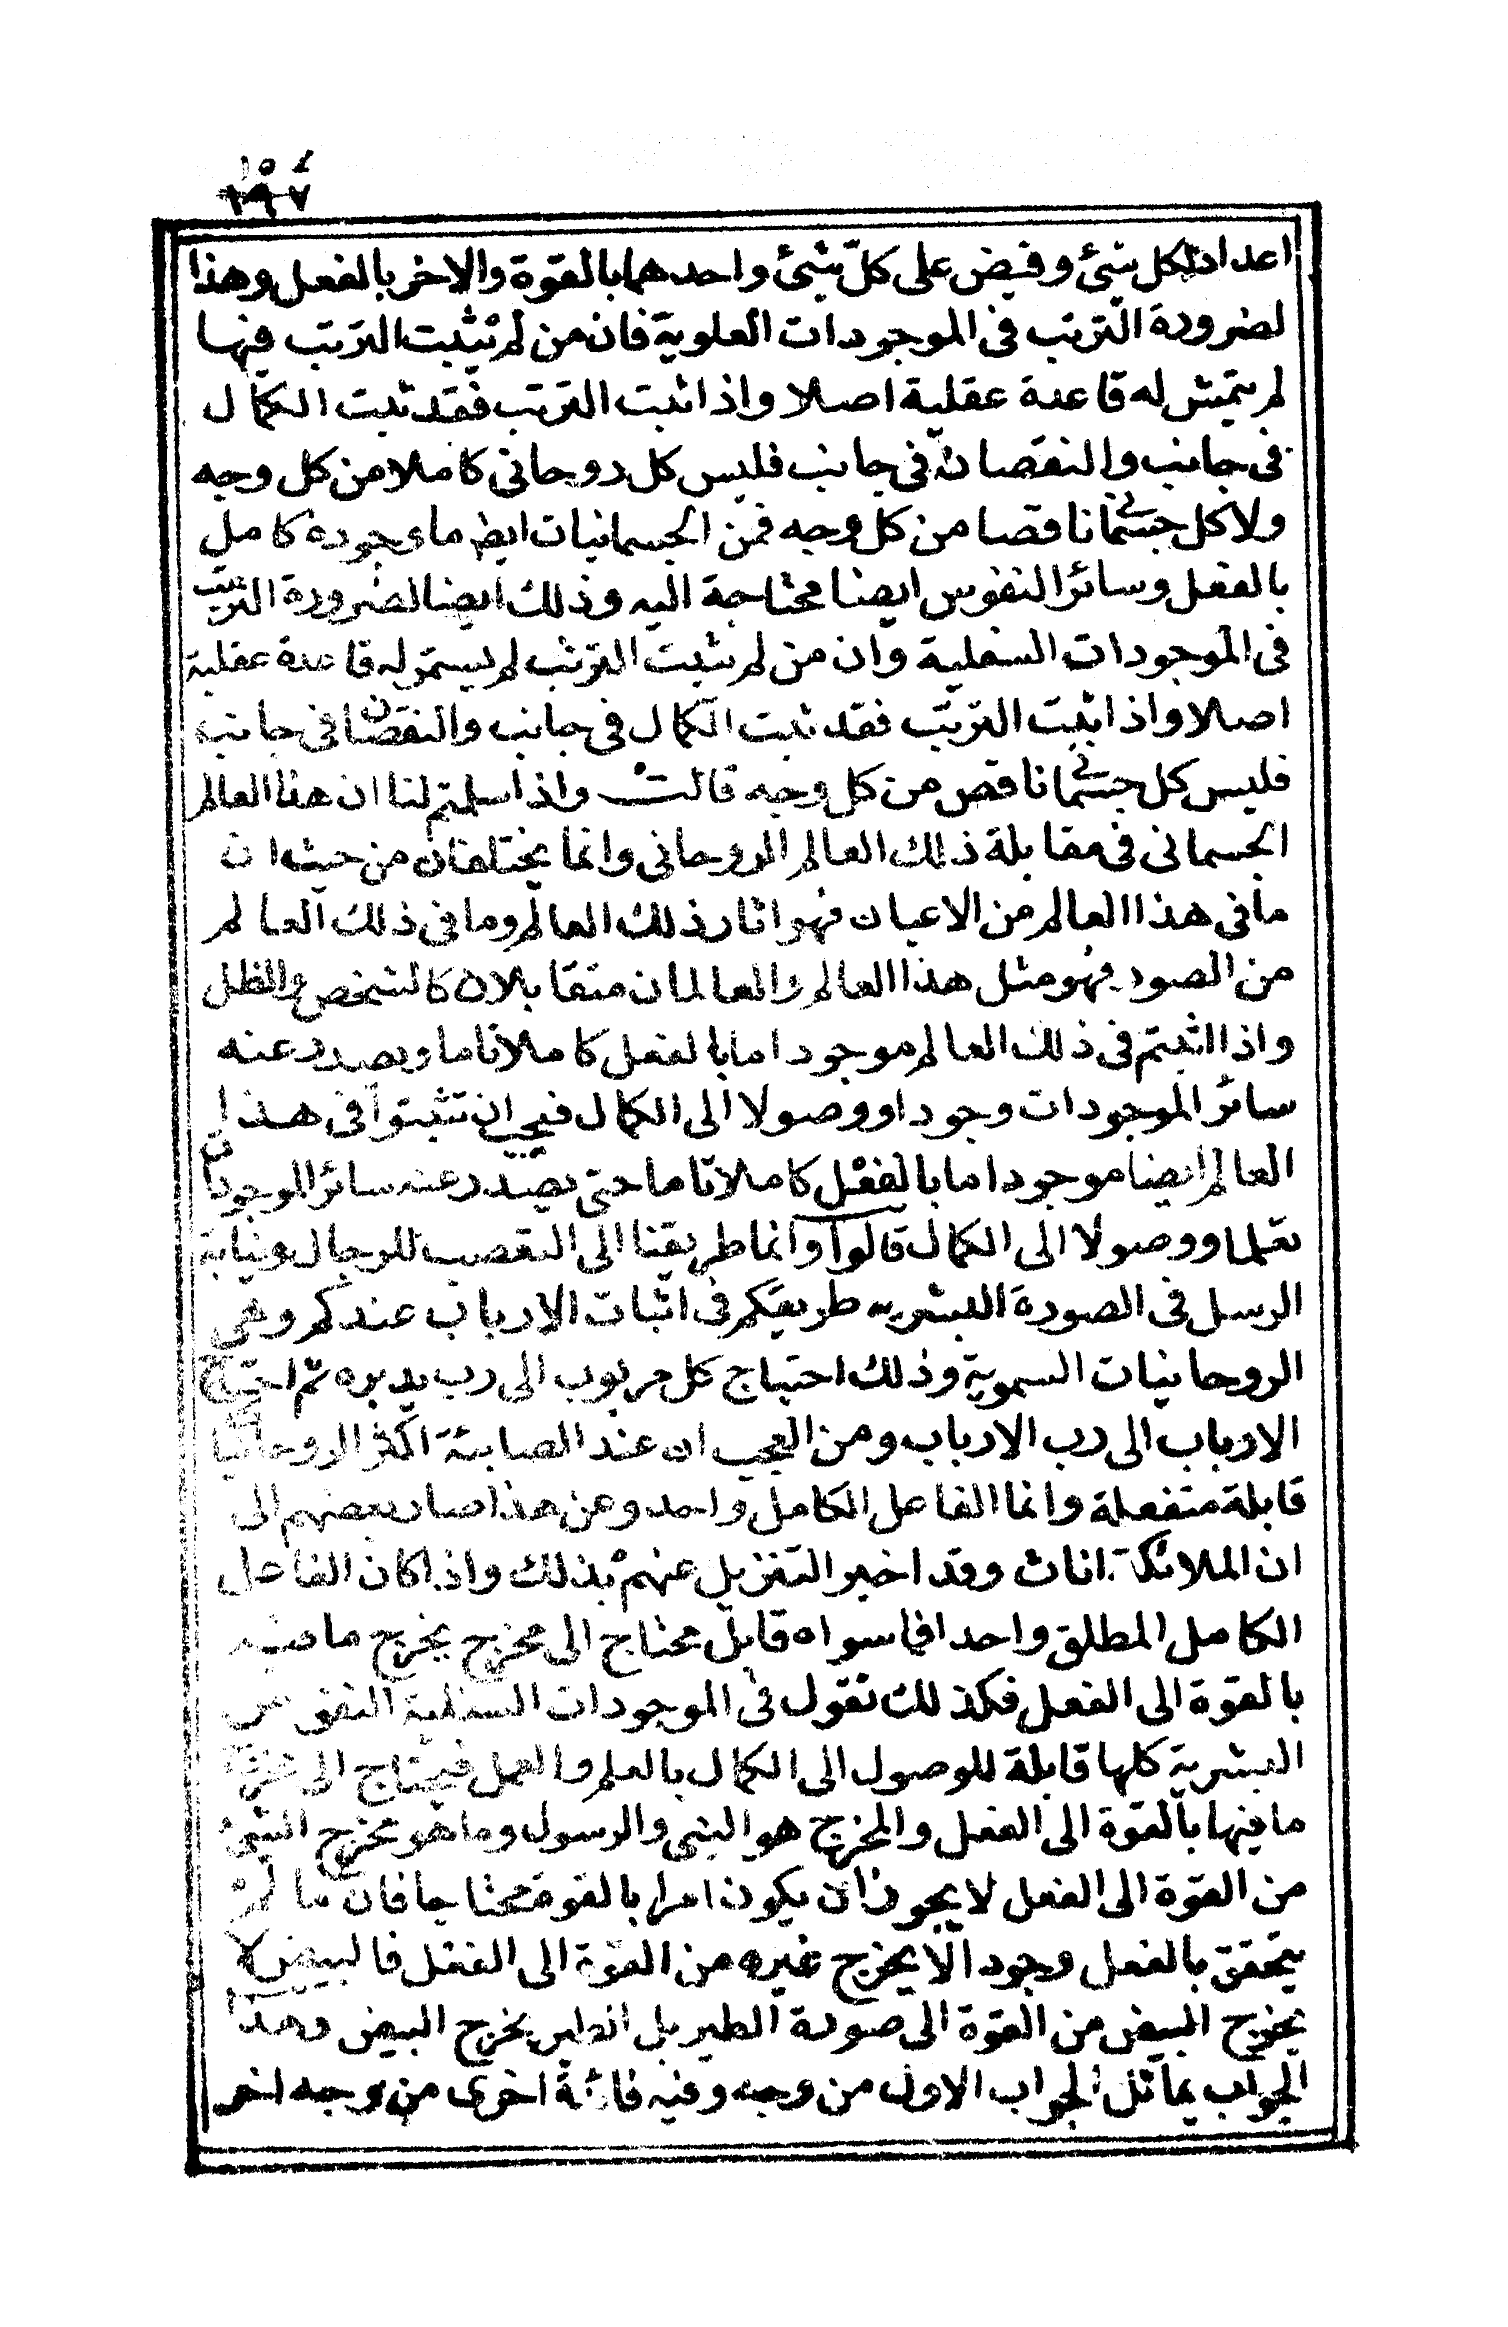 ١٥٤
١٩٧
اعداد لكل شئ وفيض على كلّ شئ واحدهما بالقوة والاخر بالفعل وهذا
لضرورة الترتب فى الموجودات العلوية فان من لم يثبت الترتب فيها
لم يتمش له قاعدة عقلية اصلا واذا ثبت الترتب فقد ثبت الكمال
فى جانب والنقصان فى جانب فليس كل روحانى كاملا من كل وجه
ولا كل جسمانى ناقصا من كل وجه فمن الجسمانيات ايضا ما وجوده كامل
بالفعل وسائر النفوس ايضا محتاجة اليه وذلك ايضا لضرورة الترتب
فى الموجودات السفلية وان من لم يثبت الترتب لم يستمر له قاعدة عقلية
اصلا واذا ثبت الترتب فقد ثبت الكمال فى جانب والنقصان فى جانب
فليس كل جسمانى ناقص من كل وجه قالت واذا سلمتم لنا ان هذا العالم
الجسمانى فى مقابلة ذلك العالم الروحانى وانما يختلفان من حيث ان
ما فى هذا العالم من الاعيان فهو اثار ذلك العالم وما فى ذلك العالم
من الصور فهو مثل هذا العالم والعالمان متقابلان كالشخص والظل
واذا اثبتم فى ذلك العالم موجودا ما بالفعل كاملا تاما ويصدر عنه
سائر الموجودات وجودا ووصولا الى الكمال فيجب ان تثبتوا فى هذا
العالم ايضا موجودا ما بالفعل كاملا تاما حتى يصدر عنه سائر الموجودات
تعلما ووصولا الى الكمال قالوا وانما طريقنا الى التعصب للرجال ونيابة
الرسل فى الصورة البشريه طريقكم فى اثبات الارباب عندكم وهى
الروحانيات السموية وذلك احتياج كل مربوب الى رب يدبره ثم احتياج
الارباب الى رب الارباب ومن العجب ان عند الصابئة اكثر الروحانيات
قابلة منفعلة وانما الفاعل الكامل واحد وعن هذا صار بعضهم الى
ان الملائكة اناث وقد اخبر التنزيل عنهم بذلك واذا كان الفاعل
الكامل المطلق واحدا فما سواه قابل محتاج الى مخرج يخرج ما فيه
بالقوة الى الفعل فكذلك نقول فى الموجودات السفلية النفوس
البشرية كلها قابلة للوصول الى الكمال بالعلم والعمل فيحتاج الى مخرج
ما فيها بالقوة الى الفعل والمخرج هو النبى والرسول وما هو مخرج الشئ
من القوة الى الفعل لا يجوز ان يكون امرا بالقوة محتاجا فان ما لم
يتحقق بالفعل وجودا لا يخرج غيره من القوة الى الفعل فالبيض لا
يخرج البيض من القوة الى صورة الطير بل الطير يخرج البيض وهذا
الجواب يماثل الجواب الاول من وجه وفيه فائدة اخرى من وجه اخر